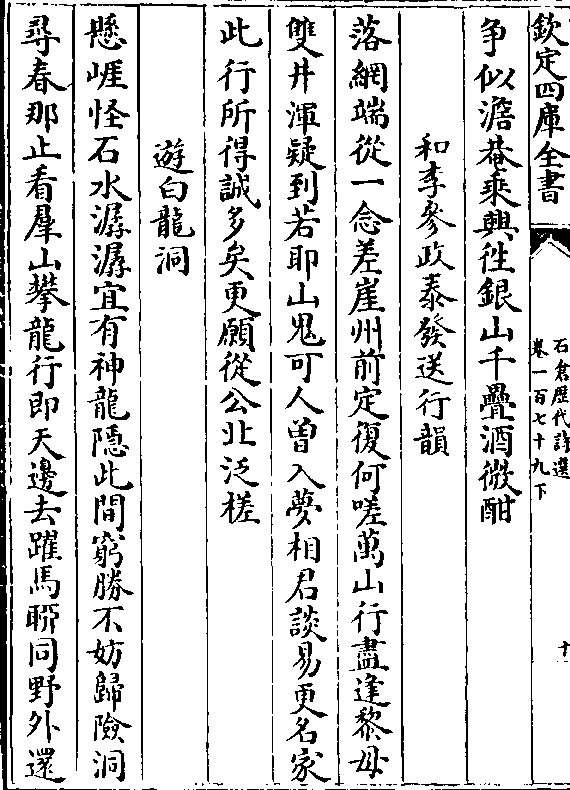 欽定四庫全書
石倉歷代詩選
卷一百七十九下
十
爭似澹菴乘興徃銀山千疊酒微酣
和李參政泰發送行韻
落網端從一念差崖州前定復何嗟萬山行盡逢黎母
雙井渾疑到若耶山鬼可人曽入夢相君談易更名家
此行所得誠多矣更願從公北泛槎
遊白龍洞
懸崕怪石水潺潺宜有神龍隱此間窮勝不妨歸險洞
尋春那止看羣山攀龍行即天邊去躍馬聊同野外還